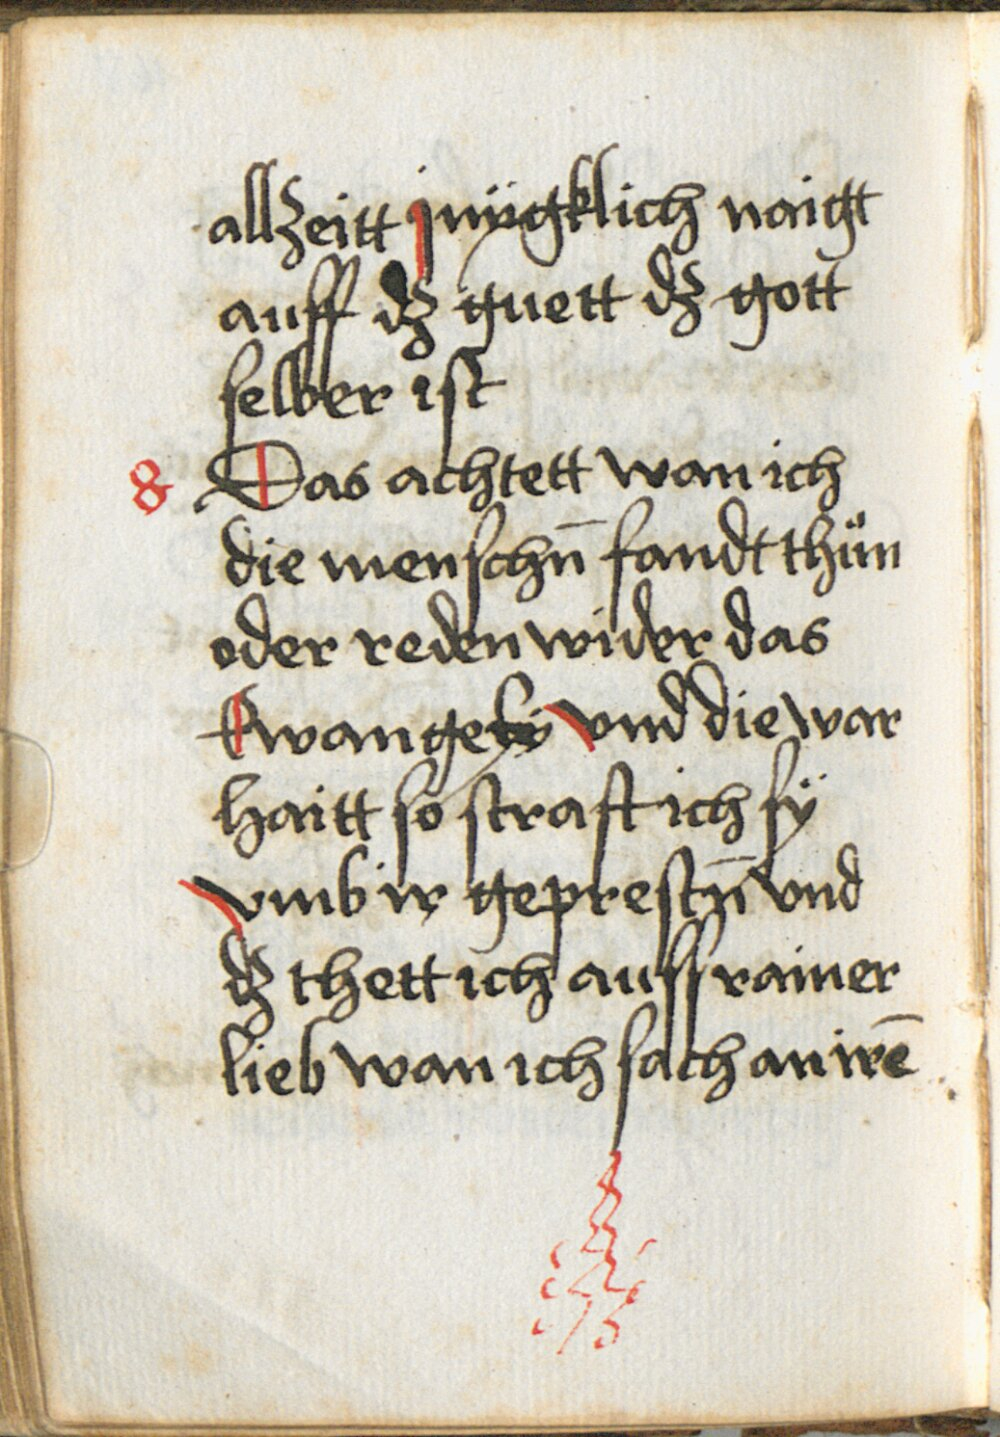 allzeitt jnygklich naigt
auff dz guett dz gott
selber ist
8 Das achtett wan ich
die menschn̄ fandt thün
oder reden wider das
Ewangely vnd die war
haitt so straft ich sÿ
vmb ir geprestn̄ vnd
dz thett ich auss rainer
lieb wan ich sach an irē